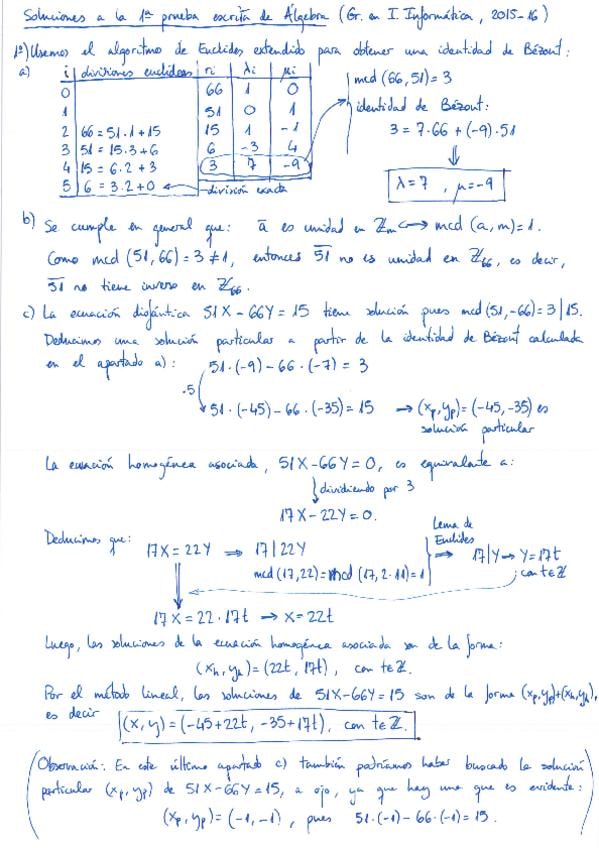 Soluciones a la 1ª prueba escrita de Álgebra (Gr. en I. Informática, 2015-16)
1º) Usemos el algoritmo de Euclides extendido para obtener una identidad de Bézout:
a)
i | divisiones euclídeas | ri | λi | μi
0 | | 66 | 1 | 0
1 | | 51 | 0 | 1
2 | 66 = 51·1+15 | 15 | 1 | -1
3 | 51 = 15·3+6 | 6 | -3 | 4
4 | 15 = 6·2+3 | 3 | 7 | -9
5 | 6 = 3·2+0 ← división exacta
mcd (66,51) = 3
identidad de Bézout:
3 = 7·66 + (-9)·51
⇓
λ=7 , μ=-9
b) Se cumple en general que: ā es unidad en ℤm ↔ mcd (a,m)=1.
Como mcd (51,66) = 3 ≠ 1, entonces 51̄ no es unidad en ℤ66, es decir,
51̄ no tiene inverso en ℤ66.
c) La ecuación diofántica 51X-66Y=15 tiene solución pues mcd (51,-66)=3|15.
Deducimos una solución particular a partir de la identidad de Bézout calculada
en el apartado a):
51·(-9) - 66·(-7) = 3
·5
51·(-45) - 66·(-35) = 15 → (xp,yp) = (-45,-35) es
solución particular
La ecuación homogénea asociada, 51X-66Y=0, es equivalente a:
↓ dividiendo por 3
17X-22Y=0.
Deducimos que:
17X=22Y ⇒ 17|22Y
mcd (17,22) = mcd (17,2·11) = 1
Lema de
Euclides
⇒ 17|Y → Y=17t
con t∈ℤ
17X = 22·17t → X=22t
Luego, las soluciones de la ecuación homogénea asociada son de la forma:
(xh,yh) = (22t, 17t), con t∈ℤ.
Por el método lineal, las soluciones de 51X-66Y=15 son de la forma (xp,yp)+(xh,yh),
es decir (x,y) = (-45+22t, -35+17t), con t∈ℤ.
(Observación: En este último apartado c) también podríamos haber buscado la solución
particular (xp,yp) de 51X-66Y=15, a ojo, ya que hay una que es evidente:
(xp,yp) = (-1,-1), pues 51·(-1) - 66·(-1) = 15.)